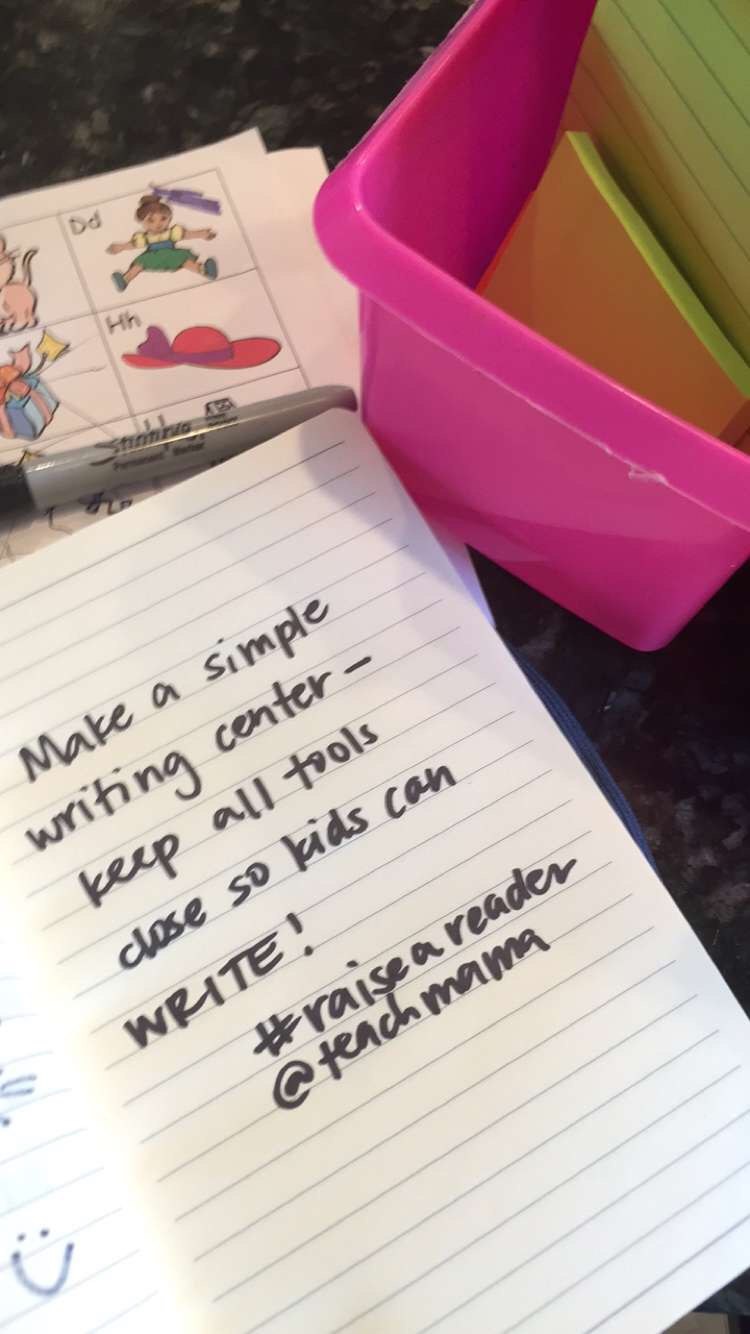 Dd
Hh
Permanent Marker
Make a simple
writing center –
keep all tools
close so kids can
WRITE!
#raiseareader
@teachmama